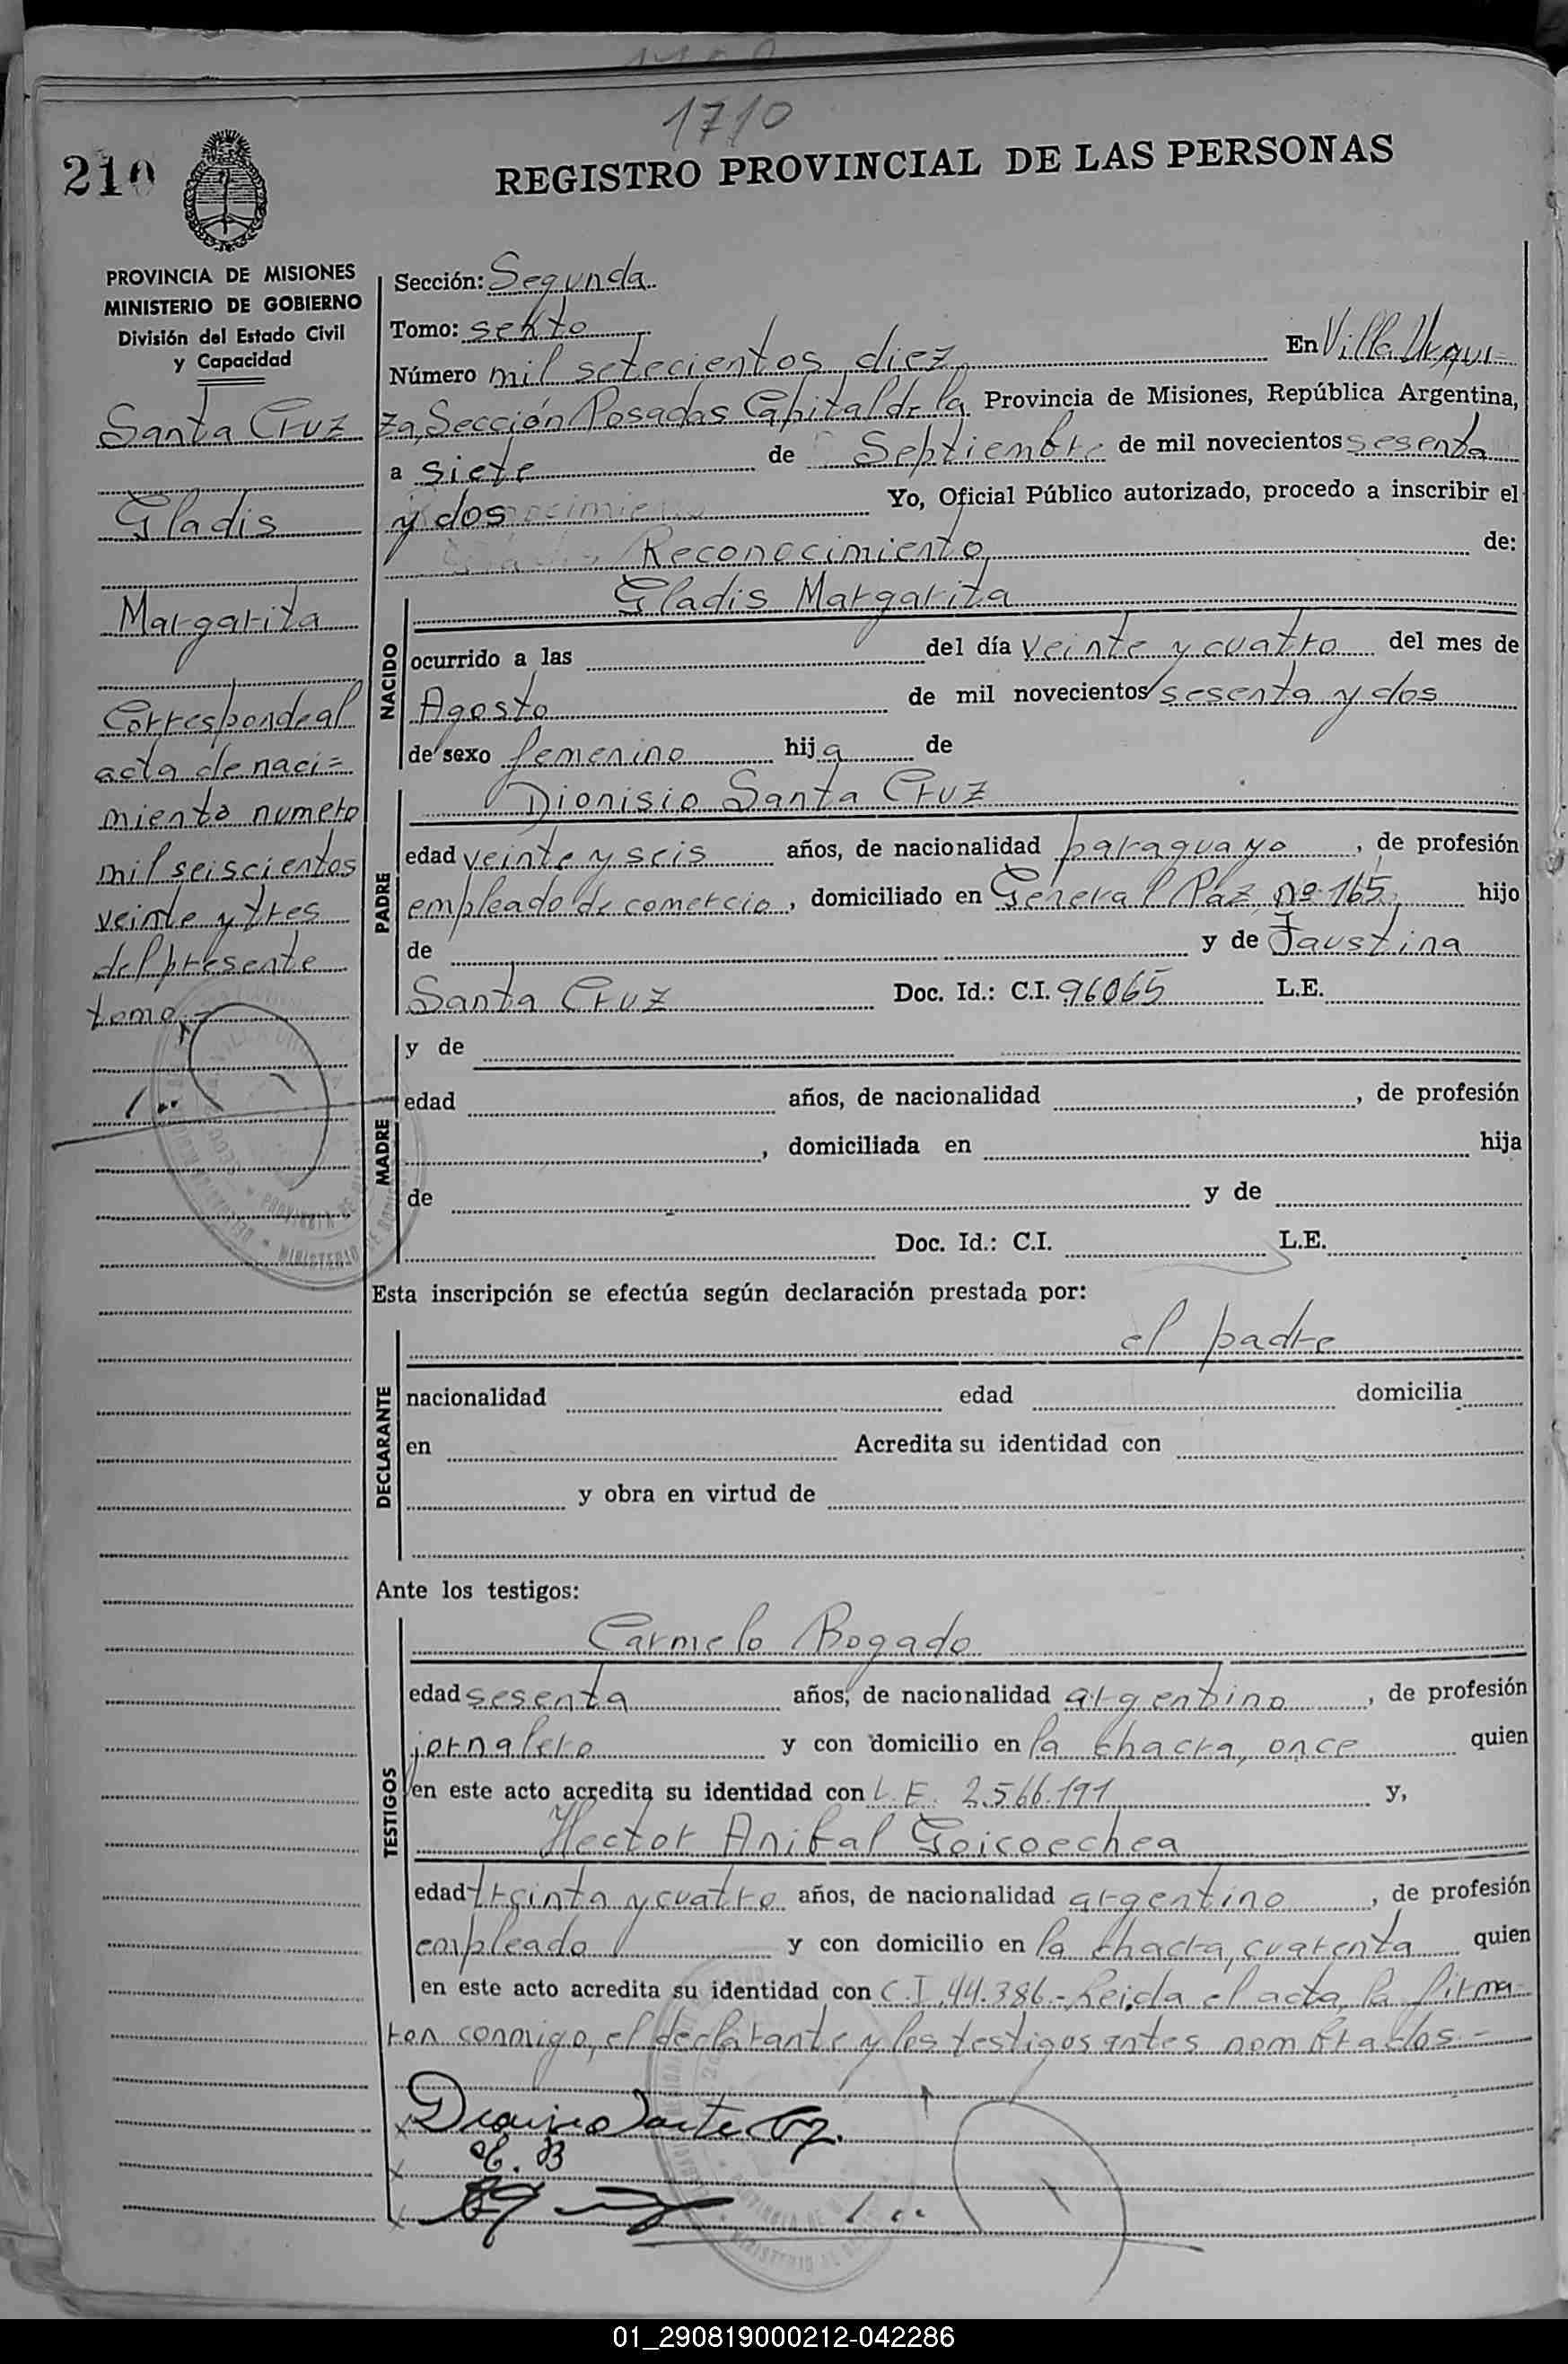 1710
210
REGISTRO PROVINCIAL DE LAS PERSONAS
PROVINCIA DE MISIONES
MINISTERIO DE GOBIERNO
División del Estado Civil
y Capacidad
Santa Cruz
Gladis
Margarita
Corresponde al
acta de naci=
miento numero
mil seiscientos
veinte y tres
del presente
tomo.-
Sección: Segunda
Tomo: sexto
Número mil setecientos diez En Villa Urqui=
za, Sección Posadas Capital de la Provincia de Misiones, República Argentina,
a siete de Septiembre de mil novecientos sesenta
y dos Yo, Oficial Público autorizado, procedo a inscribir el
Reconocimiento de:
NACIDO
Gladis Margarita
ocurrido a las del día veinte y cuatro del mes de
Agosto de mil novecientos sesenta y dos
de sexo femenino hija de
PADRE
Dionisio Santa Cruz
edad veinte y seis años, de nacionalidad paraguayo, de profesión
empleado de comercio, domiciliado en General Paz nº 165, hijo
de y de Faustina
Santa Cruz Doc. Id.: C.I. 96065 L.E.
MADRE
y de
edad años, de nacionalidad , de profesión
, domiciliada en hija
de y de
Doc. Id.: C.I. L.E.
Esta inscripción se efectúa según declaración prestada por:
DECLARANTE
el padre
nacionalidad edad domicilia
en Acredita su identidad con
y obra en virtud de
Ante los testigos:
TESTIGOS
Carmelo Bogado
edad sesenta años, de nacionalidad argentino, de profesión
jornalero y con domicilio en la chacra, once quien
en este acto acredita su identidad con L.E. 2.566.191 y,
Hector Anibal Goicoechea
edad treinta y cuatro años, de nacionalidad argentino, de profesión
empleado y con domicilio en la chacra, cuarenta quien
en este acto acredita su identidad con C.I. 44.386.- Leida el acta, la firma=
ron conmigo, el declarante y los testigos antes nombrados.-
Dionisio Santa Cruz.
C. B
01_290819000212-042286